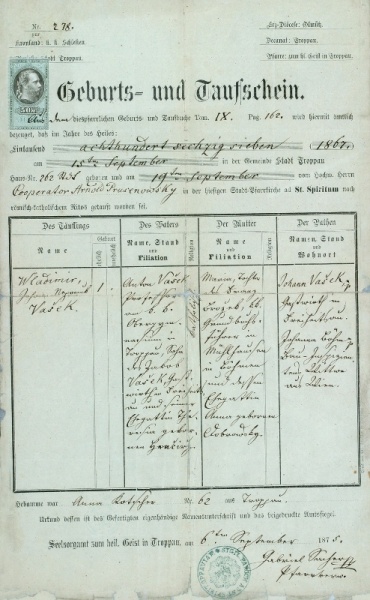 Nr. 278.
Erz-Diöcese: Olmütz.
Kronland: k. k. Schlesien
Decanat: Troppau.
Bezirk: Stadt Troppau.
Pfarre: zum hl. Geist in Troppau.
Geburts- und Taufschein.
Aus dem diespfarrlichen Geburts- und Taufbuche Tom. IX. Pag. 162. wird hiermit amtlich
bezeugt, daß im Jahre des Heiles:
Eintausend achthundert sechzig sieben 1867.
am 15ten September in der Gemeinde Stadt Troppau
Haus-Nr. 262 geboren und am 19ten September von Hochw. Herrn
Cooperator Arnold in der hiesigen Stadt-Pfarrkirche ad St. Spiritum nach
römisch-katholischem Ritus getauft worden sei.
Des Täuflings
Des Vaters
Der Mutter
Der Pathen
Name
Geburt
Name, Stand und Filiation
Religion
Name und Filiation
Religion
Namen, Stand und Wohnort
Wladimir,
Johann Nepomuk
Vašek.
1.
Anton Vašek
Professor
am k. k. Obergym-
nasium in
Troppau, Sohn
des Jakob
Vašek, Gast-
und seiner
Ehegattin The-
resia gebor-
nen
katholisch
Maria, Tochter
des Franz
Grundbuchs-
führers in
Mühlhausen
in Böhmen
und dessen
Ehegattin
Anna geborenen
Johann Vašek,
Gastwirth in
Johanna
aus Wien.
Hebamme war Anna Nr. 62 aus Troppau.
Urkund dessen ist des Gefertigten eigenhändige Namensunterschrift und das beigedruckte Amtssiegel.
Seelsorgsamt zum heil. Geist in Troppau, am 6ten September 1875.
Gabriel
Pfarrer